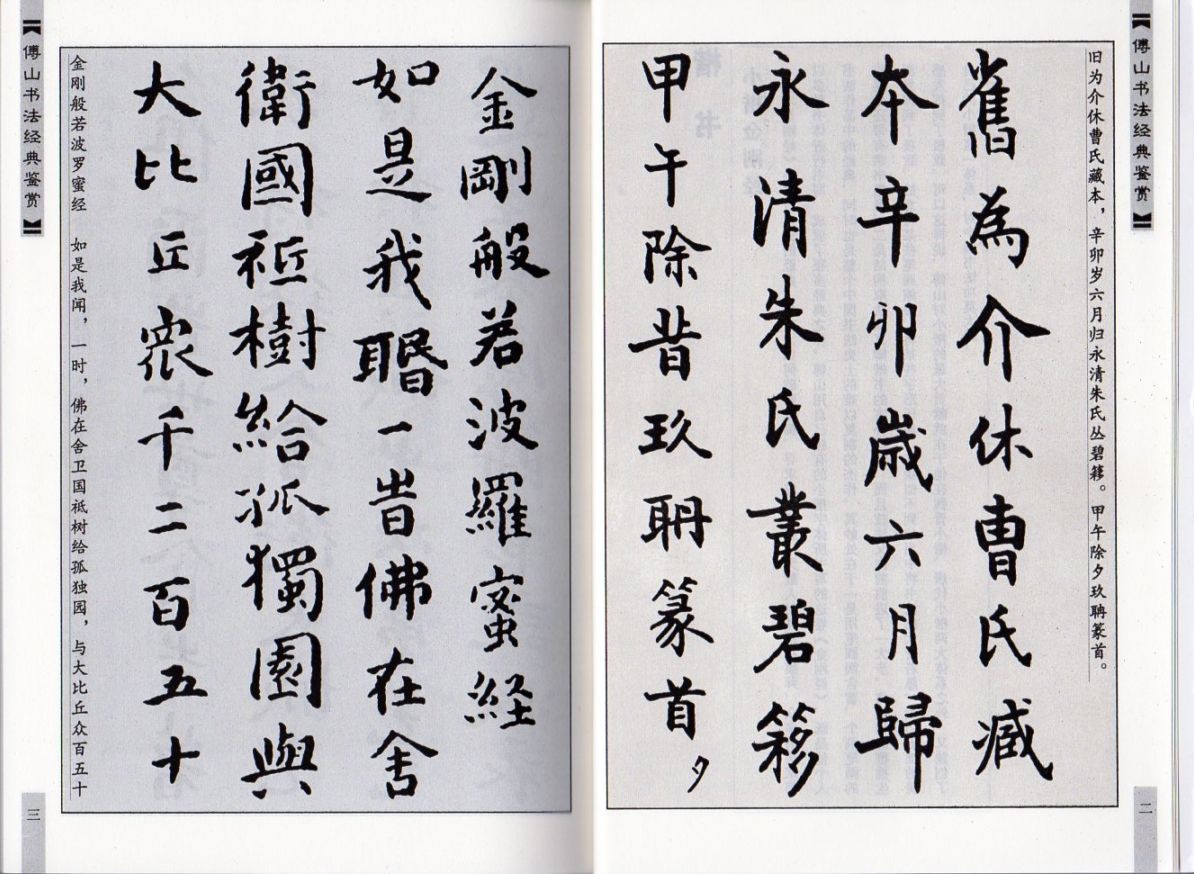 【傅山书法经典鉴赏】
旧为介休曹氏藏本，辛卯岁六月归永清朱氏丛碧簃。甲午除夕玖聃篆首。
舊為介休曹氏臧
本辛卯歲六月歸
永清朱氏叢碧簃
甲午除昔玖聃篆首
夕
二
【傅山书法经典鉴赏】
金剛般若波羅蜜経
如是我聞一旹佛在舍
衛國祇樹給孤獨園與
大比丘眾千二百五十
金刚般若波罗蜜经 如是我闻，一时，佛在舍卫国祗树给孤独园，与大比丘众百五十
三